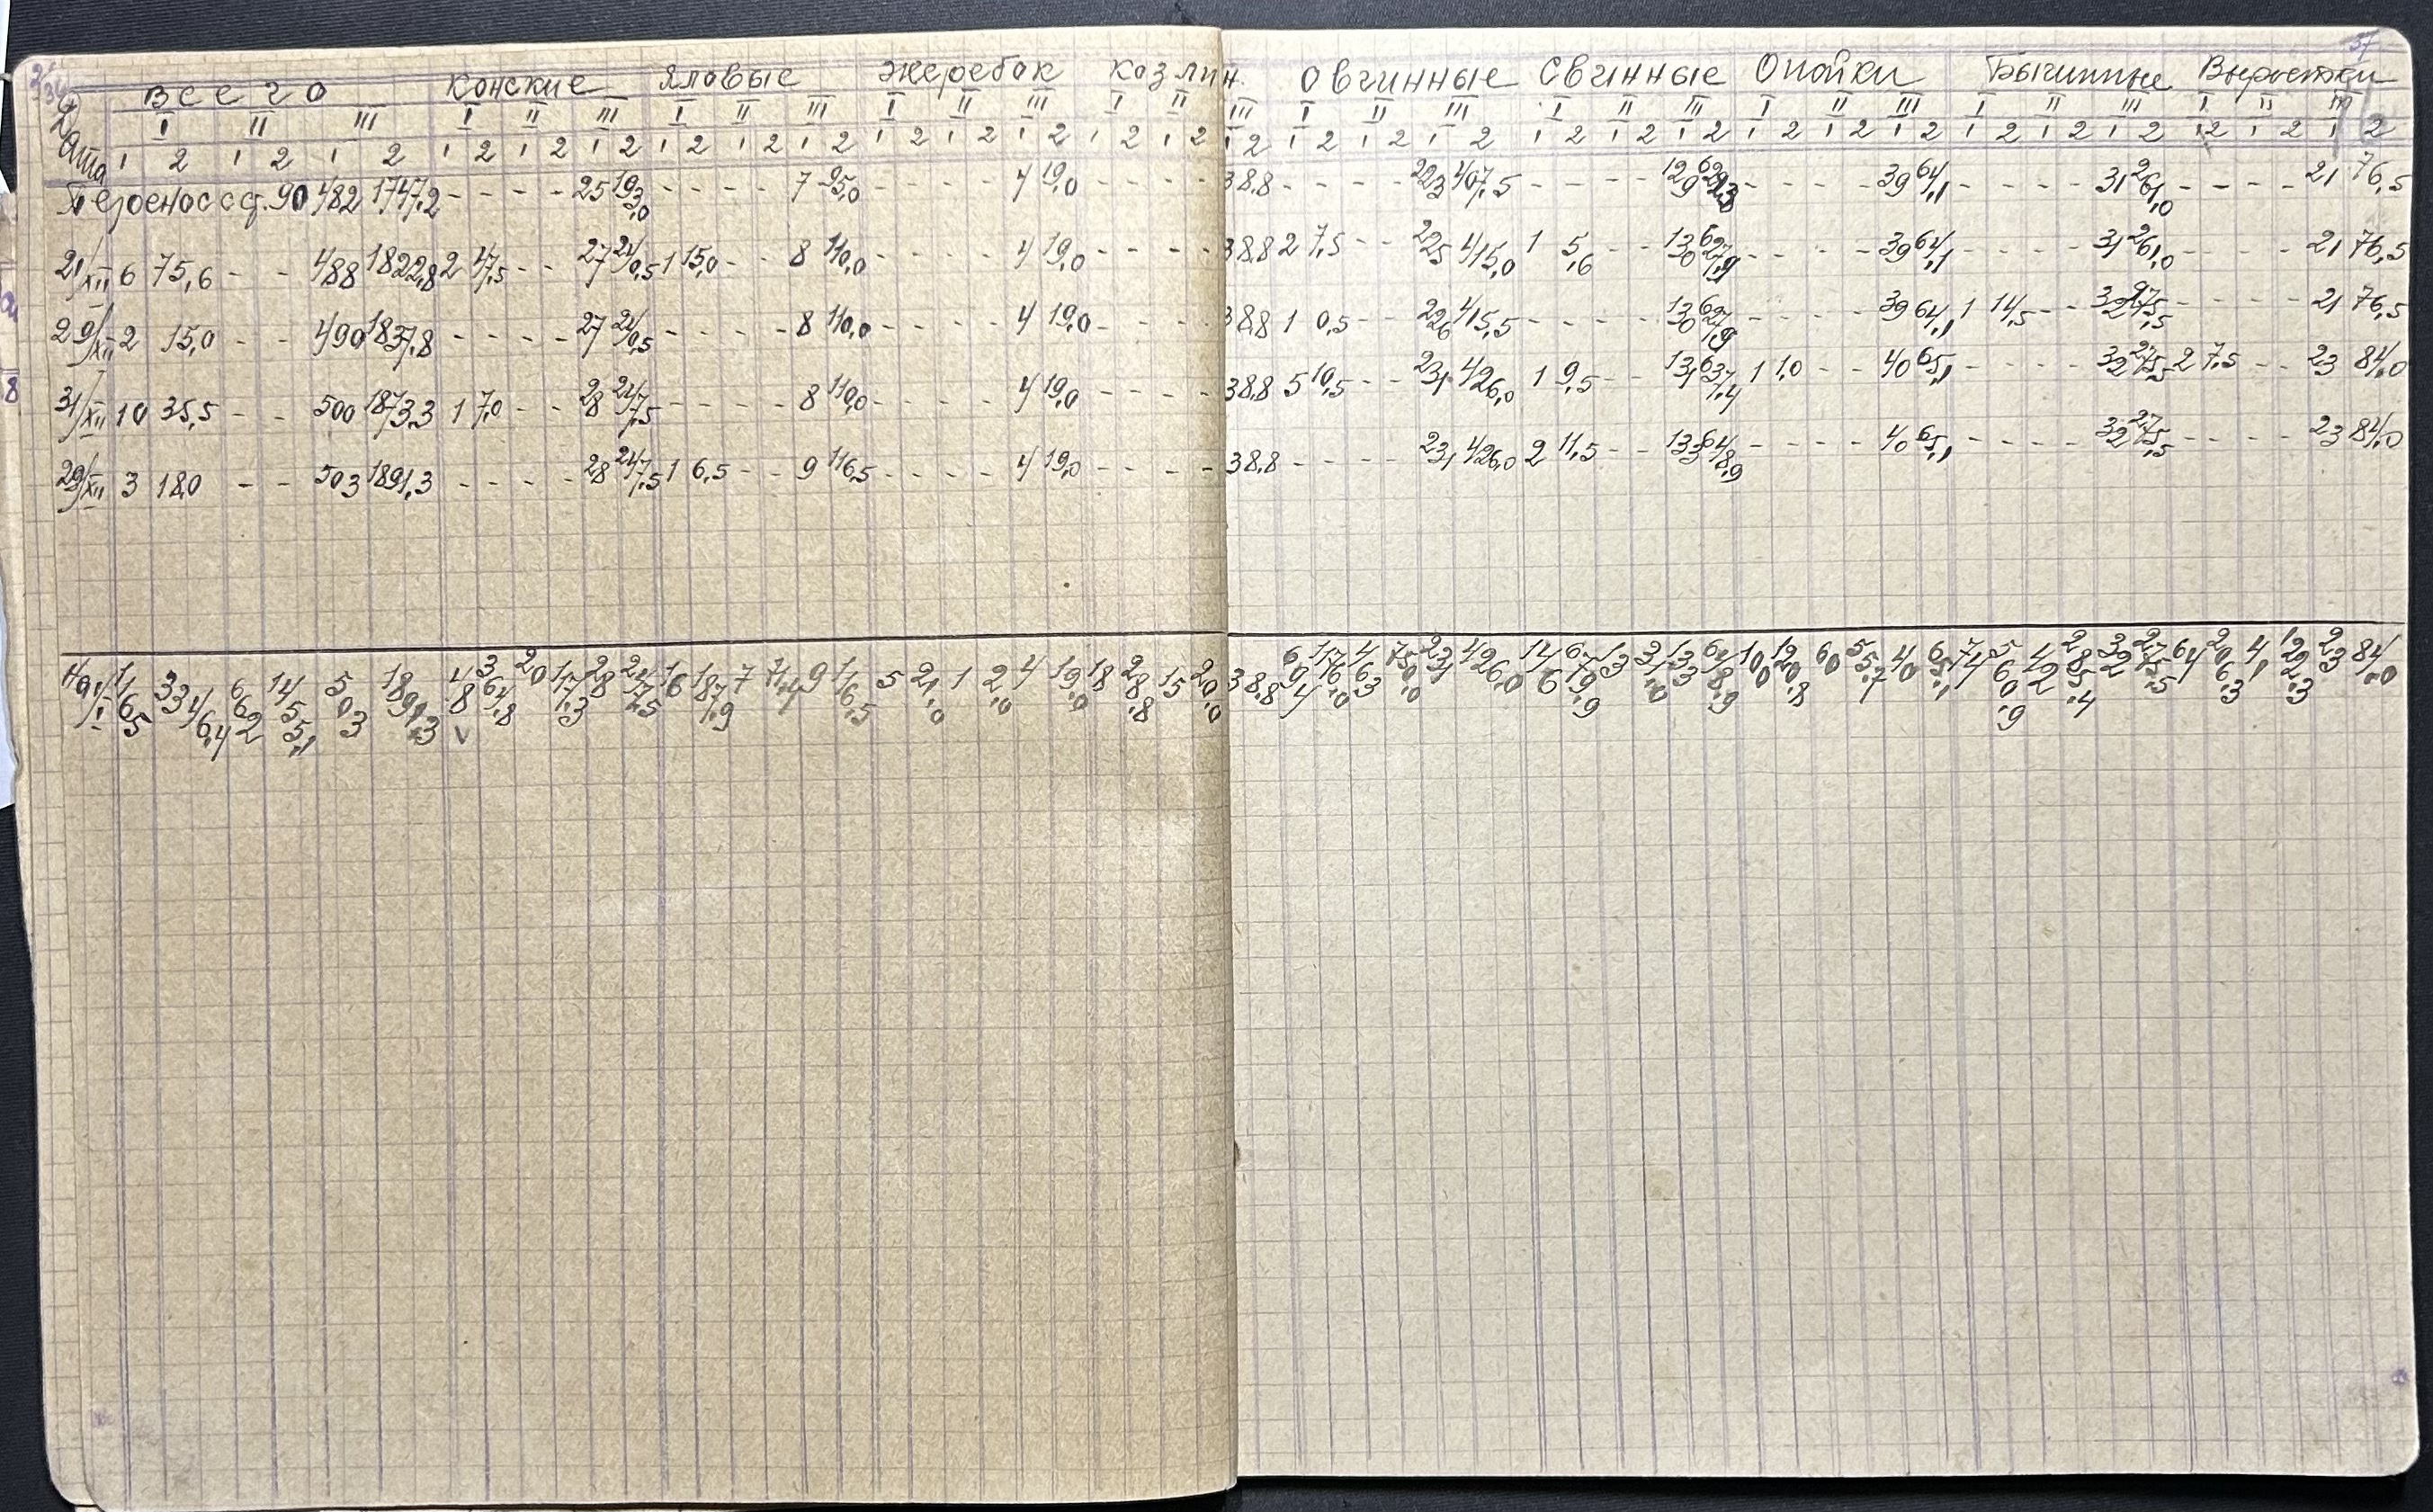 Всего Конские Яловые Жеребок Козлин. Овчинные Свинные Опойки Бычинные Выростки
Дата I II III I II III I II III I II III I II III I II III I II III I II III I II III I II III
1 2 1 2 1 2 1 2 1 2 1 2 1 2 1 2 1 2 1 2 1 2 1 2 1 2 1 2 1 2 1 2 1 2 1 2 1 2 1 2 1 2 1 2 1 2 1 2 1 2 1 2 1 2 1 2 1 2 1 2
Перенос с ст. 90 482 1747,2 - - - - 25 193,0 - - - - 7 95,0 - - - - 4 19,0 - - - - 3 8.8 - - - - 223 407,5 - - - - 129 - - - - 39 64,1 - - - - 31 261,0 - - - - 21 76,5
21/XII 6 75,6 - - 488 1822,8 2 47,5 - - 27 240,5 1 15,0 - - 8 110,0 - - - - 4 19,0 - - - - 3 8.8 2 7,5 - - 225 415,0 1 5,6 - - 130 627,9 - - - - 39 64,1 - - - - 31 261,0 - - - - 21 76,5
29/XII 2 15,0 - - 490 1837,8 - - - - 27 240,5 - - - - 8 110,0 - - - - 4 19,0 - - - - 3 8.8 1 0,5 - - 226 415,5 - - - - 130 627,9 - - - - 39 64,1 1 14,5 - - 32 275,5 - - - - 21 76,5
31/XII 10 35,5 - - 500 1873,3 1 7,0 - - 28 247,5 - - - - 8 110,0 - - - - 4 19,0 - - - - 3 8.8 5 10,5 - - 231 426,0 1 9,5 - - 131 637,4 1 1,0 - - 40 65,1 - - - - 32 275,5 2 7,5 - - 23 84,0
29/XII 3 18,0 - - 503 1891,3 - - - - 28 247,5 1 6,5 - - 9 116,5 - - - - 4 19,0 - - - - 3 8.8 - - - - 231 426,0 2 11,5 - - 133 648,9 - - - - 40 65,1 - - - - 32 275,5 - - - - 23 84,0
На 1/I 1165 3346,4 662 1455,1 503 1891,3 48 364,8 20 117,3 28 247,5 16 187,9 7 71,4 9 116,5 5 21,0 1 2,0 4 19,0 18 28,8 15 20,0 3 8.8 694 1176,0 463 750,0 231 426,0 146 679,9 13 31,0 133 648,9 100 120,8 60 55,7 40 65,1 74 560,9 42 285,4 32 275,5 64 206,3 41 122,3 23 84,0